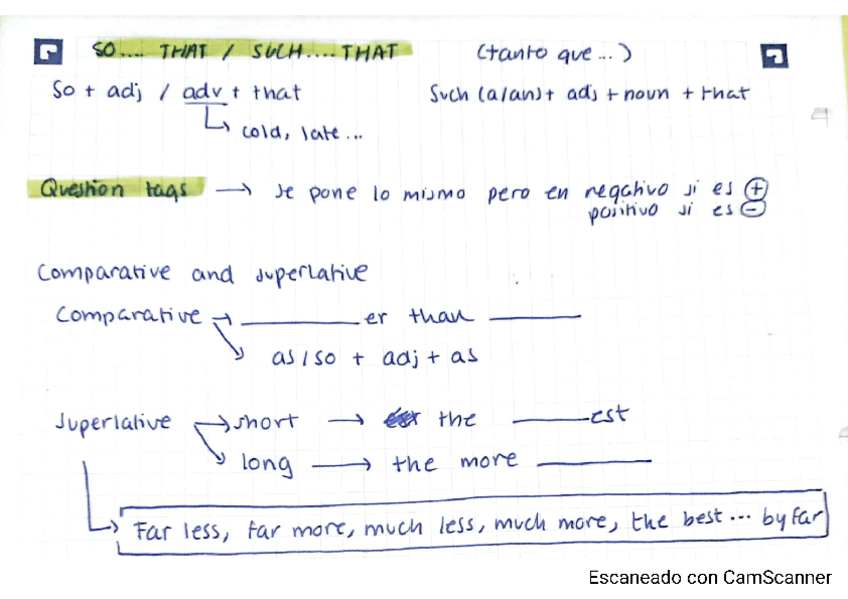 SO.... THAT / SUCH.... THAT (tanto que...)
So + adj / adv + that Such (a/an) + adj + noun + that
cold, late...
Question tags → se pone lo mismo pero en negativo si es +
positivo si es -
Comparative and superlative
Comparative → ________ er than ________
as/so + adj + as
Superlative → short → the ________est
long → the more ________
Far less, far more, much less, much more, the best... by far
Escaneado con CamScanner